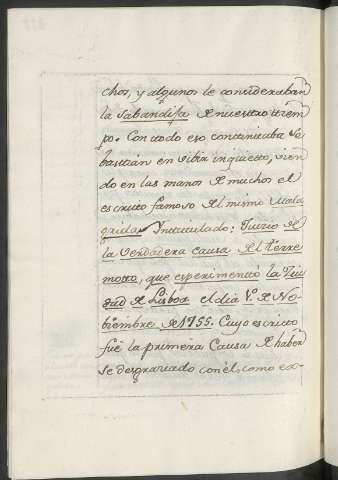 chos, y algunos le consideraban
la Sabandija de nuestro tiem
po. Con todo eso continuaba Se
bastian en vibir inquieto, vien
do en las manos de muchos el
escrito famoso del mismo Mala
grida Intitulado: Juizio de
la verdadera causa del terre
moto, que esperimentó la Ciu
dad de Lisboa el dia 1º de No-
biembre de 1755. Cuyo escrito
fué la primera Causa de haber
se desgraciado con él, como ex-